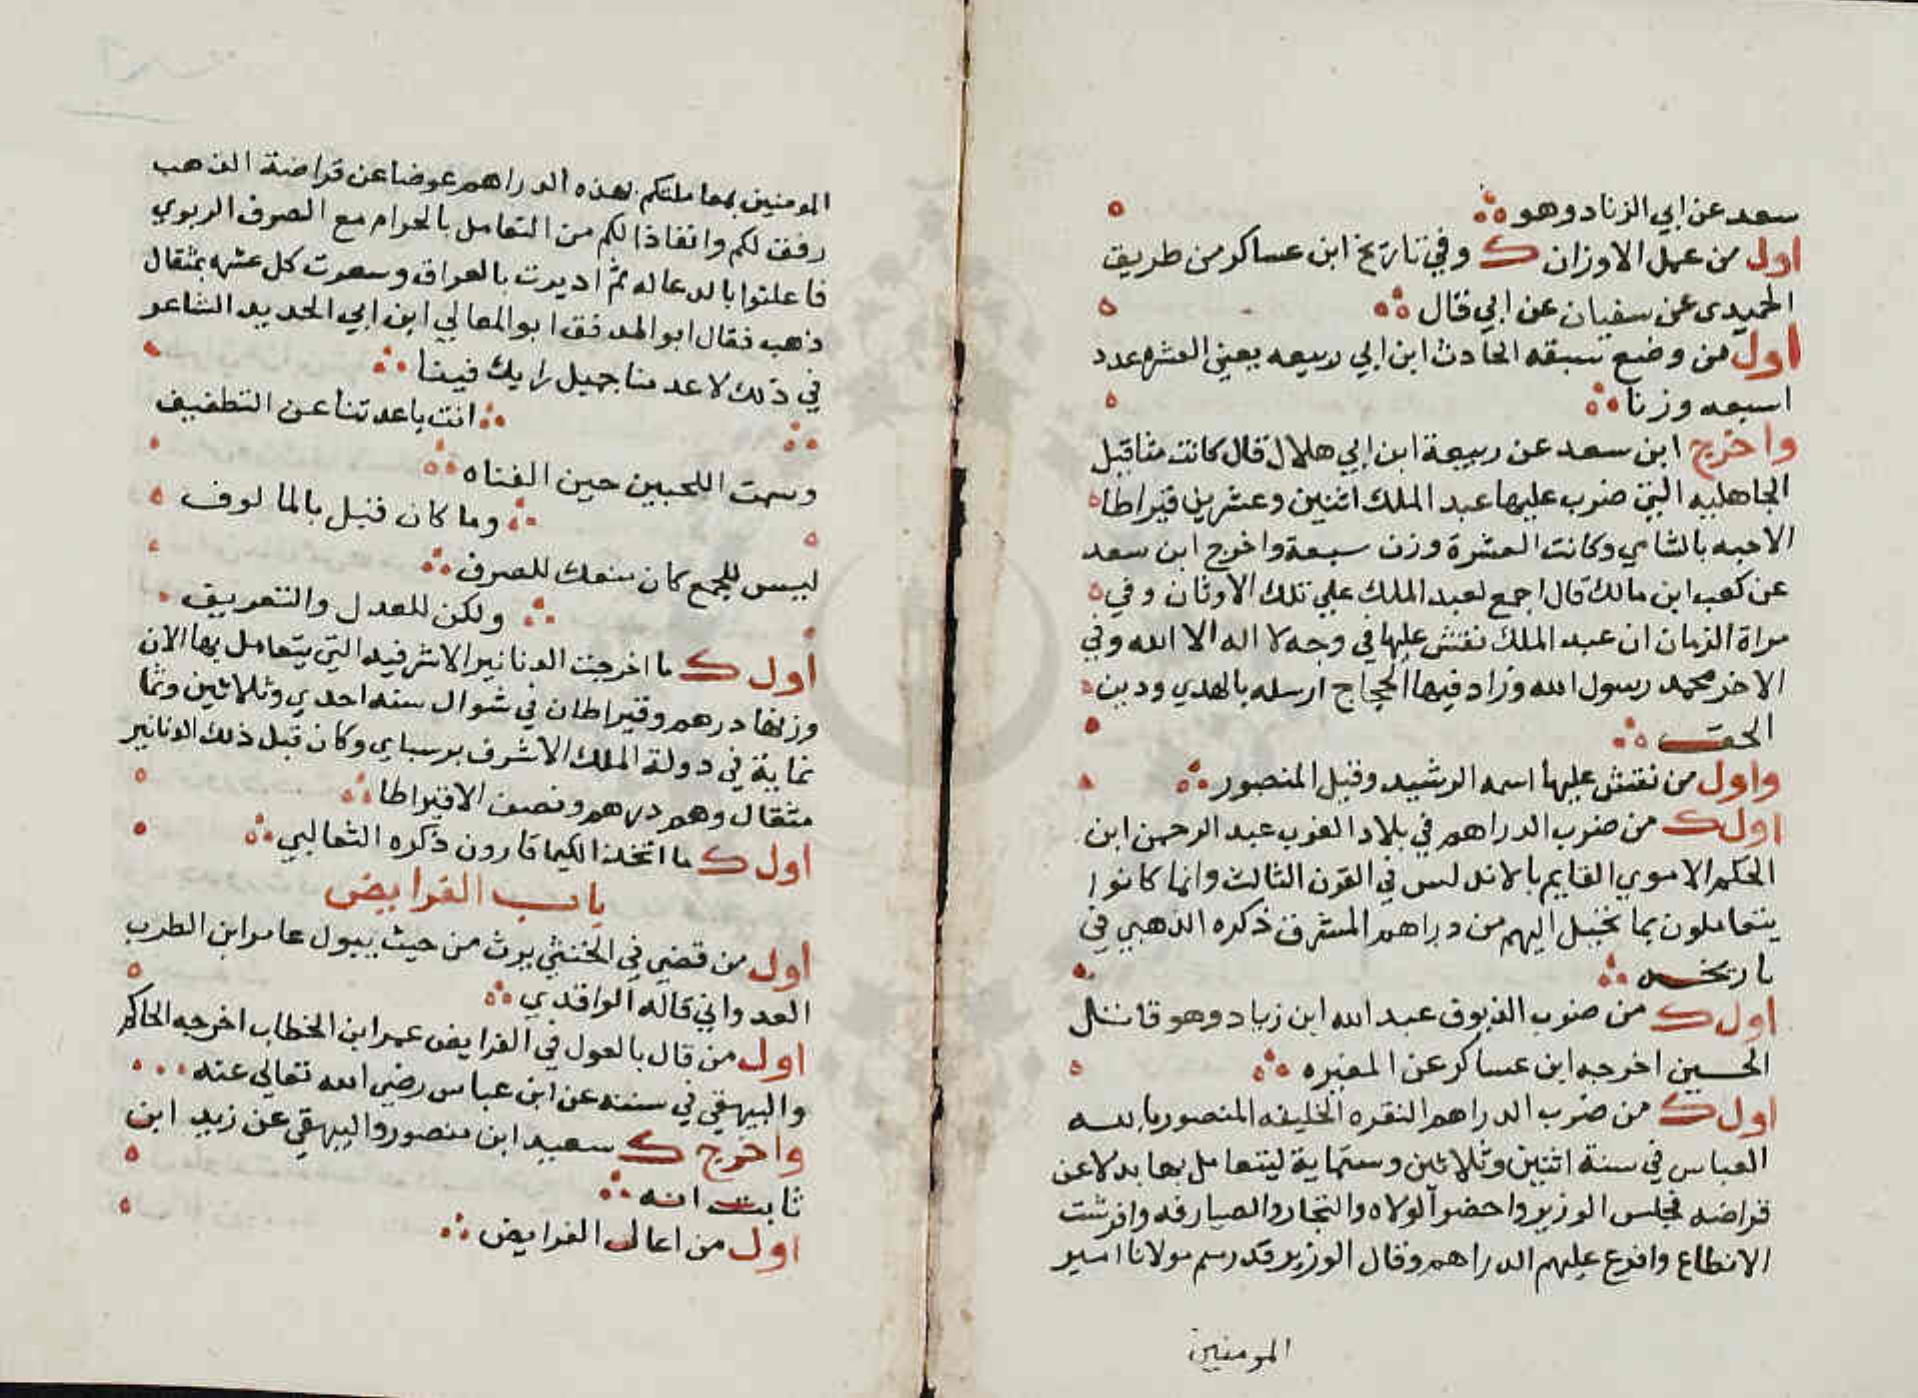 سعد عن ابي الزناد وهو
اول من عمل الاوزان ك وفي تاريخ ابن عساكر من طريق
الحميدي عن سفيان عن ابي قال
اول من وضع سبقه الحادث ابن ابي ربيعه يعني العشره عدد
اسبعه وزنا
واخرج ابن سعد عن ربيعة ابن ابي هلال قال كانت مثاقيل
الجاهليه التي ضرب عليها عبد الملك اثنين وعشرين قيراطا
الاحبه بالشامي وكانت العشرة وزن سبعة واخرج ابن سعد
عن كعب ابن مالك قال اجمع لعبد الملك علي تلك الاوثان وفي
مراة الزمان ان عبد الملك نقش عليها في وجه لا اله الا الله وفي
الاخر محمد رسول الله وزاد فيها الحجاج ارسله بالهدي ودين
الحق
واول من نقش عليها اسمه الرشيد وقيل المنصور
اول ك من ضرب الدراهم في بلاد الغرب عبد الرحمن ابن
الحكم الاموي القايم بالاندلس في القرن الثالث وانما كانوا
يتعاملون بما يحمل اليهم من دراهم المشرق ذكره الذهبي في
تاريخه
اول ك من ضرب الزيوف عبد الله ابن زياد وهو قاتل
الحسين اخرجه ابن عساكر عن المغيره
اول ك من ضرب الدراهم النقره الخليفه المنصور بالله
العباس في سنة اثنين وثلاثين وستماية ليتعامل بها بدلا عن
قراضه فجلس الوزير واحضر الولاه والتجار والصيارفه وافرشت
الانطاع وافرغ عليهم الدراهم وقال الوزير قد رسم مولانا امير
المومنين
المومنين بمعاملتكم بهذه الدراهم عوضا عن قراضة الذهب
رفق لكم وانقاذا لكم من التعامل بالحرام مع الصرف الربوي
فاعلنوا بالدعاله ثم اديرت بالعراق وسعرت كل عشره بمثقال
ذهب فقال ابو المدفق ابو المعالي ابن ابي الحديد الشاعر
في ذلك لا عدمنا جميل رايك فينا
انت باعدتنا عن التطفيف
ورسمت اللجين حين الفناه
وما كان قبل بالمالوف
ليس للجمع كان منعك للصرف
ولكن للعدل والتعريف
اول ك ما اخرجت الدنانير الاشرفيه التي يتعامل بها الان
وزنها درهم وقيراطان في شوال سنه احدي وثلاثين وثما
نماية في دولة الملك الاشرف برسباي وكان قبل ذلك الدنانير
مثقال وهم درهم ونصف الا قيراطا
اول ك ما اتخذ الكيما قارون ذكره الثعالبي
باب الفرايض
اول من قضي في الخنثي يورث من حيث يبول عامر ابن الطرب
العدواني قاله الواقدي
اول من قال بالعول في الفرايض عمر ابن الخطاب اخرجه الحاكم
والبيهقي في سننه عن ابن عباس رضي الله تعالي عنه
واخرج ك سعيد ابن منصور والبيهقي عن زيد ابن
ثابت انه
اول من اعال الفرايض